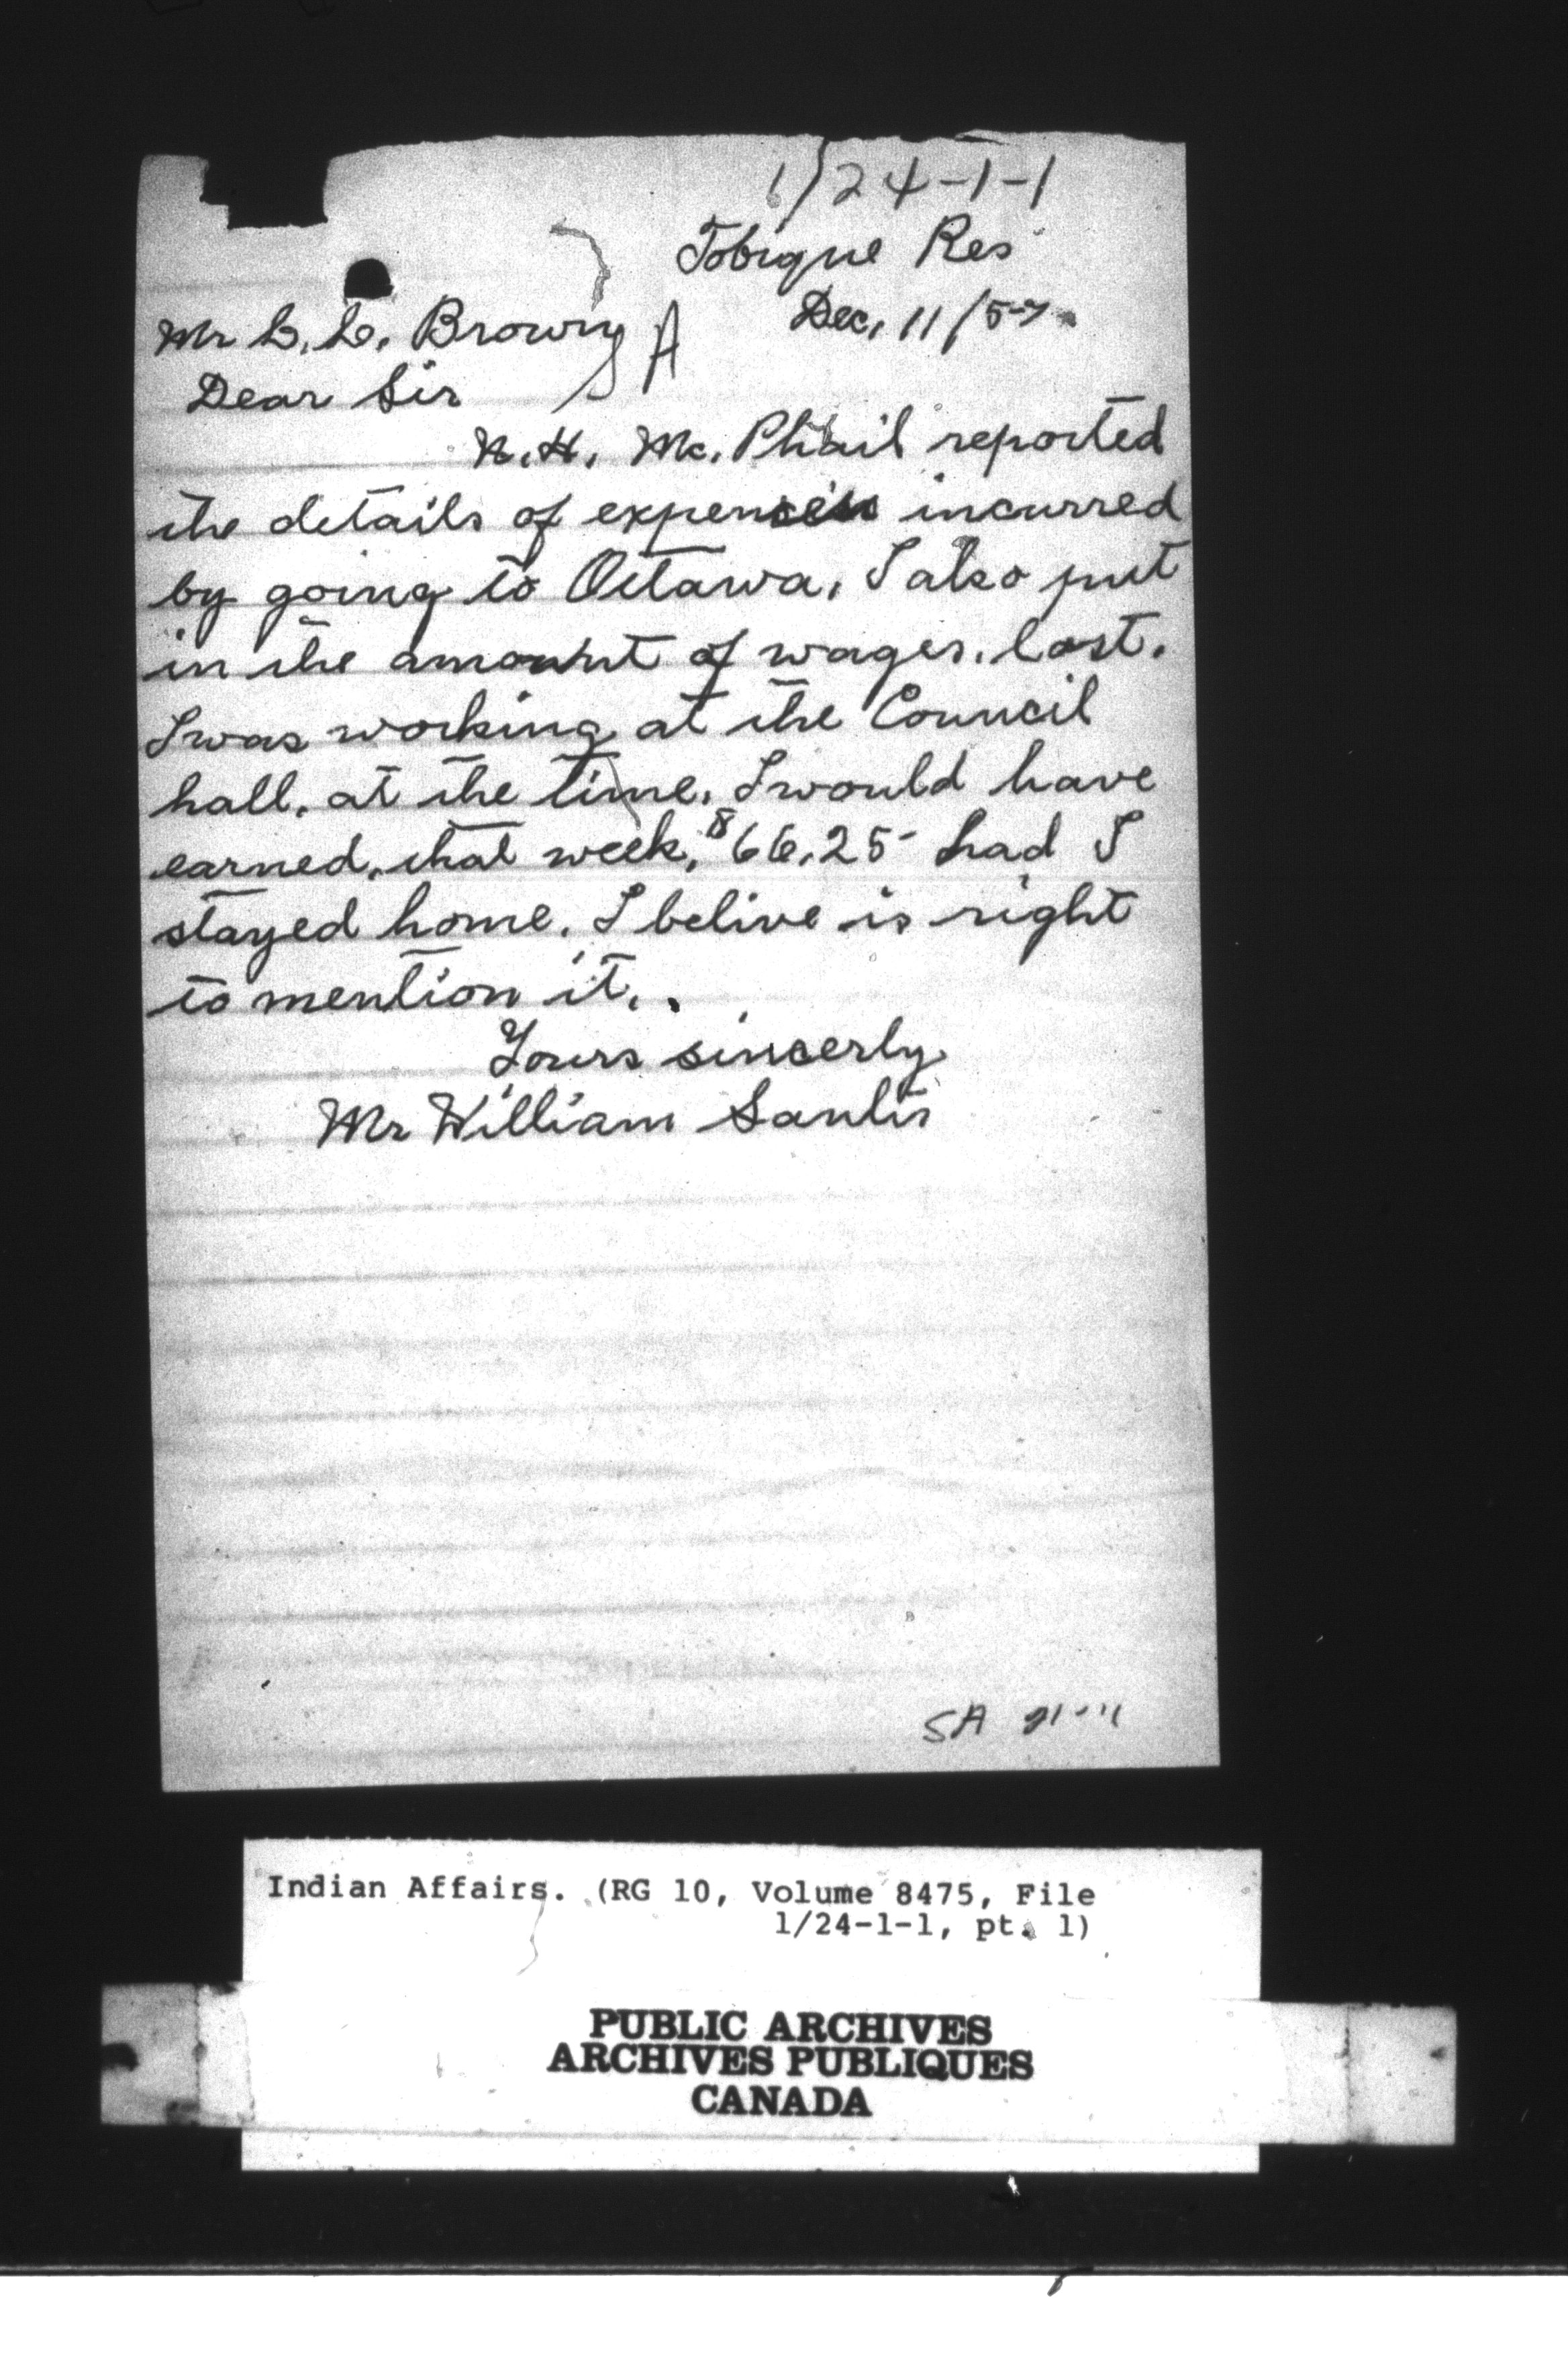 1/24-1-1
Tobique Res
Dec, 11/57
Mr L. L. Brown
Dear Sir
N.H. Mc. Phail reported
the details of expenses incurred
by going to Ottawa, I also put
in the amount of wages, lost.
I was working at the Council
hall, at the time. I would have
earned, that week, $66.25 had I
stayed home. I belive is right
to mention it.
Yours sincerly
Mr William Saulis
SA
Indian Affairs. (RG 10, Volume 8475, File
1/24-1-1, pt. 1)
PUBLIC ARCHIVES
ARCHIVES PUBLIQUES
CANADA